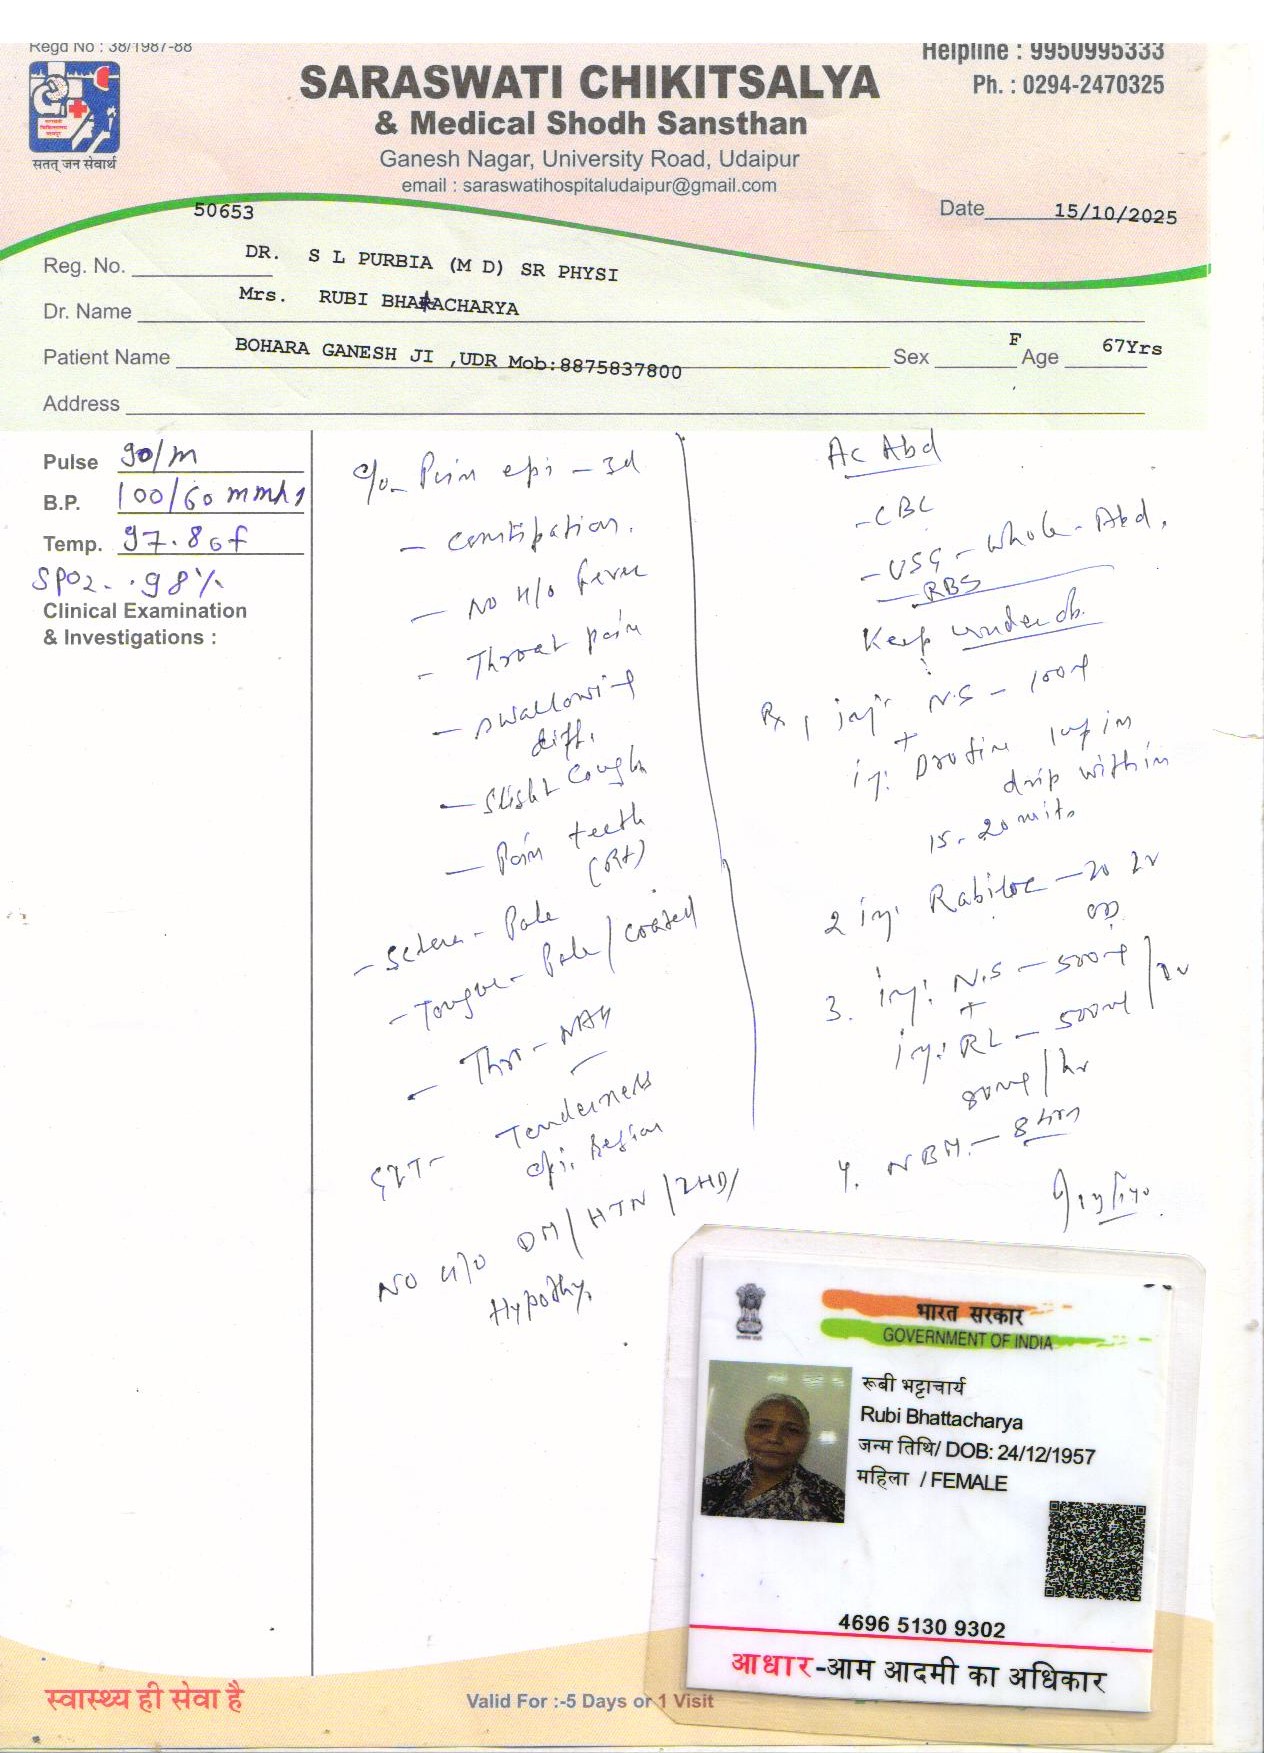 Regd No : 38/1987-88
Helpline : 9950995333
SARASWATI CHIKITSALYA
Ph. : 0294-2470325
& Medical Shodh Sansthan
Ganesh Nagar, University Road, Udaipur
email : saraswatihospitaludaipur@gmail.com
सतत् जन सेवार्थ
50653
Date 15/10/2025
Reg. No.
DR. S L PURBIA (M D) SR PHYSI
Dr. Name
Mrs. RUBI BHATACHARYA
Patient Name
BOHARA GANESH JI ,UDR Mob:8875837800
Sex F Age 67Yrs
Address
Pulse 90/m
B.P. 100/60 mmhg
Temp. 97.86f
SPO2 - 98%
Clinical Examination
& Investigations :
c/o - Pain epi - 3d
- constipation.
- NO H/o fever
- Throat pain
- swallowing
diff.
- Slight Cough
- Pain teeth
(Rt)
- Sclera - Pale
- Tongue - Pale / coated
- Thro - NAD
Tenderness
epi. Region
NO H/O DM / HTN / IHD /
Hypothy.
Ac Abd
- CBC
- USG - Whole - Abd,
- RBS
Keep under ob.
Rx 1 inj: N.S - 100ml
+
inj: Drotin 1 amp in
drip within
15 - 20 mit.
2 inj: Rabiloc - 20 iv
OD
3. inj: N.S - 500ml
+
inj: RL - 500ml / iv
80ml / hr
4. NBM. - 8 hrs
भारत सरकार
GOVERNMENT OF INDIA
रूबी भट्टाचार्य
Rubi Bhattacharya
जन्म तिथि/ DOB: 24/12/1957
महिला / FEMALE
4696 5130 9302
आधार-आम आदमी का अधिकार
स्वास्थ्य ही सेवा है
Valid For :-5 Days or 1 Visit